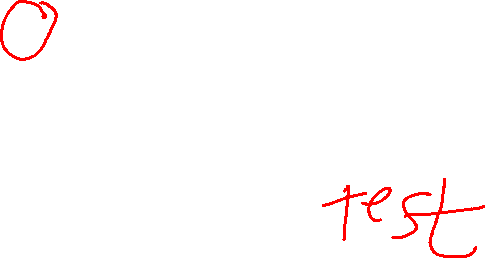 O
test